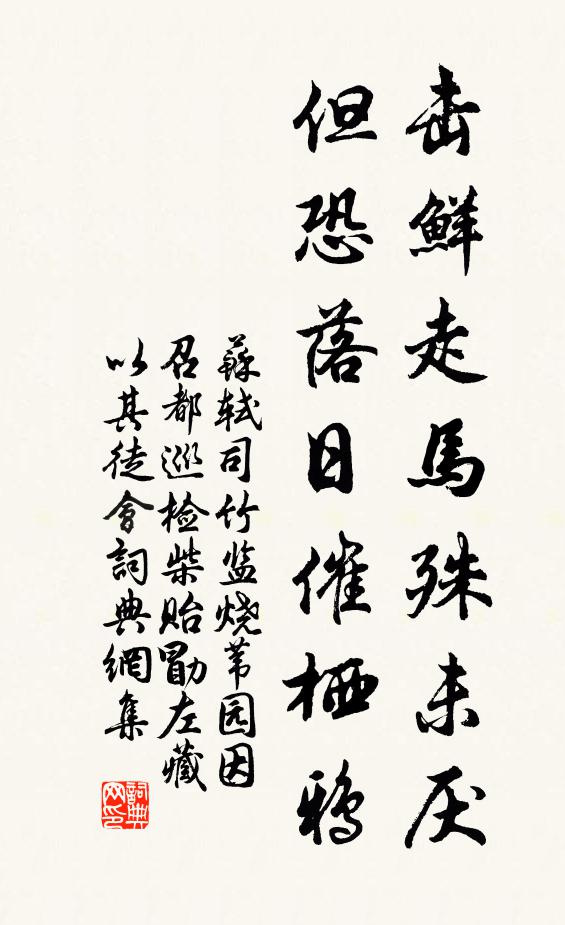 击鮮走馬殊未厌
但恐落日催栖鸦
蘇轼司竹监烧苇园因
召都巡检柴贻勖左藏
以其徒會詞典網集
詞典网印